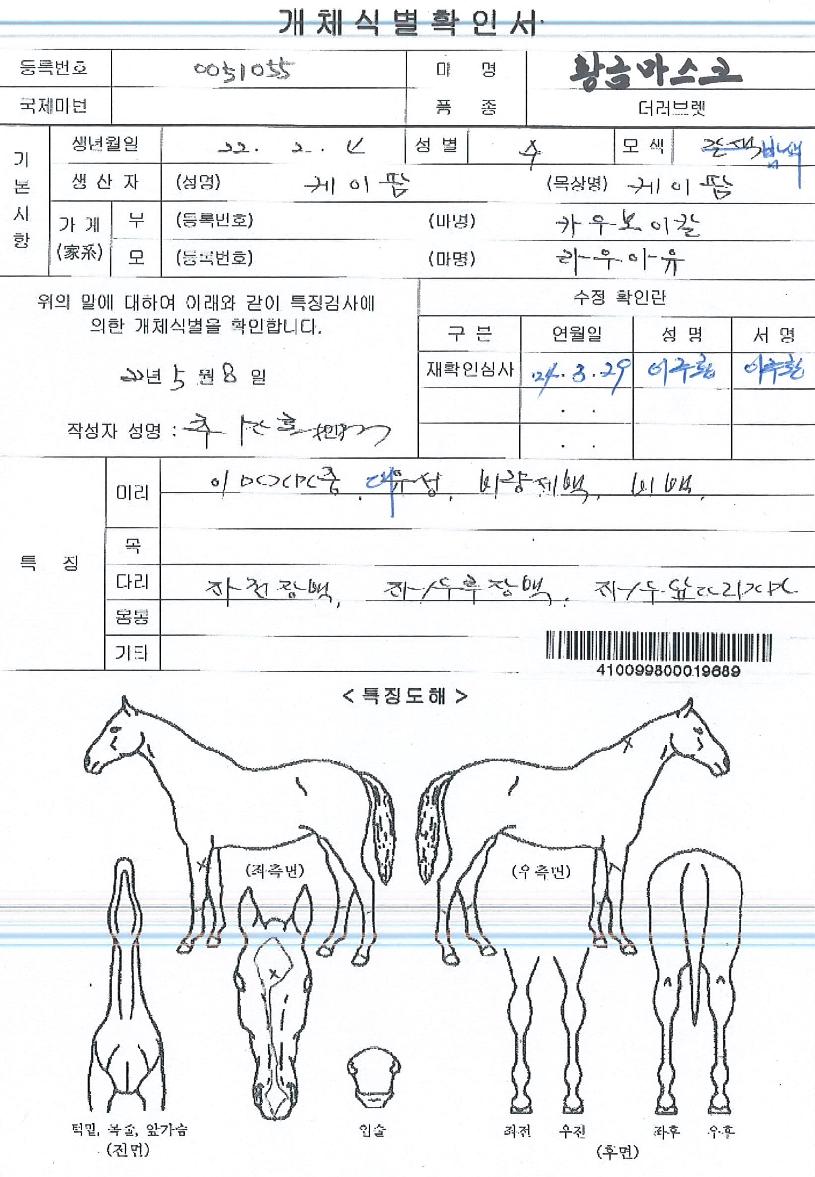 개체식별확인서
등록번호 0051055 마 명 황금마스크
국제마번 품 종 더러브렛
기본사항
생년월일 22. 2. 성 별 수 모 색 밤색
생 산 자 (성명) 케이팜 (목장명) 케이팜
가 계 (家系)
부 (등록번호) (마명) 카우보이칼
모 (등록번호) (마명) 라우아유
위의 말에 대하여 아래와 같이 특징검사에
의한 개체식별을 확인합니다.
22년 5월 8일
작성자 성명 :
수정 확인란
구 분 연월일 성 명 서 명
재확인심사 '24. 3. 29
. .
. .
특 징
머리 비량제백, 비백,
목
다리 좌전장백,
몸통
기타
410099800019689
< 특징도해 >
(좌측면) (우측면)
턱밑, 목줄, 앞가슴
(전면)
입술
좌전 우전 좌후 우후
(후면)